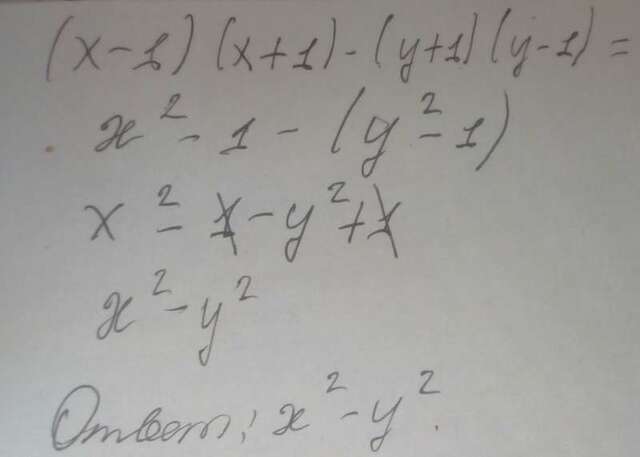 (x-1)(x+1)-(y+1)(y-1)=
x²-1-(y²-1)
x²-1-y²+1
x²-y²
Ответ: x²-y².